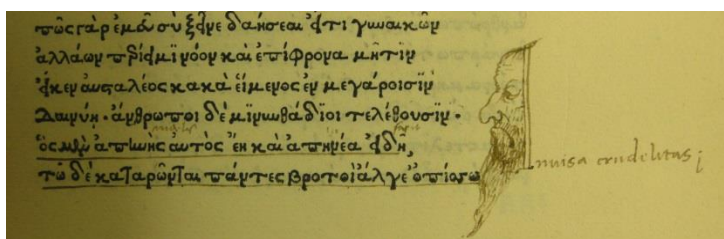 πῶς γὰρ ἐμεῦ σὺ ξεῖνε δαήσεαι εἴ τι γυναικῶν
ἀλλάων περίειμι νόον καὶ ἐπίφρονα μῆτιν
εἴ κεν ἀυσταλέος κακὰ εἵμενος ἐν μεγάροισιν
δαινύῃ· ἄνθρωποι δὲ μινυνθάδιοι τελέθουσιν·
ὃς μὲν ἀπηνὴς αὐτὸς ἔῃ καὶ ἀπηνέα εἰδῇ,
τῷ δὲ καταρῶνται πάντες βροτοὶ ἄλγε' ὀπίσσω
invisa crudelitas;